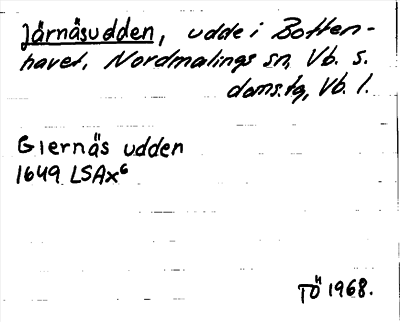 Järnäsudden, udde i Botten-
havet, Nordmalings sn, Vb. s.
doms.tg, Vb. l.
Giernäs udden
1649 LSAx6
TÖ 1968.